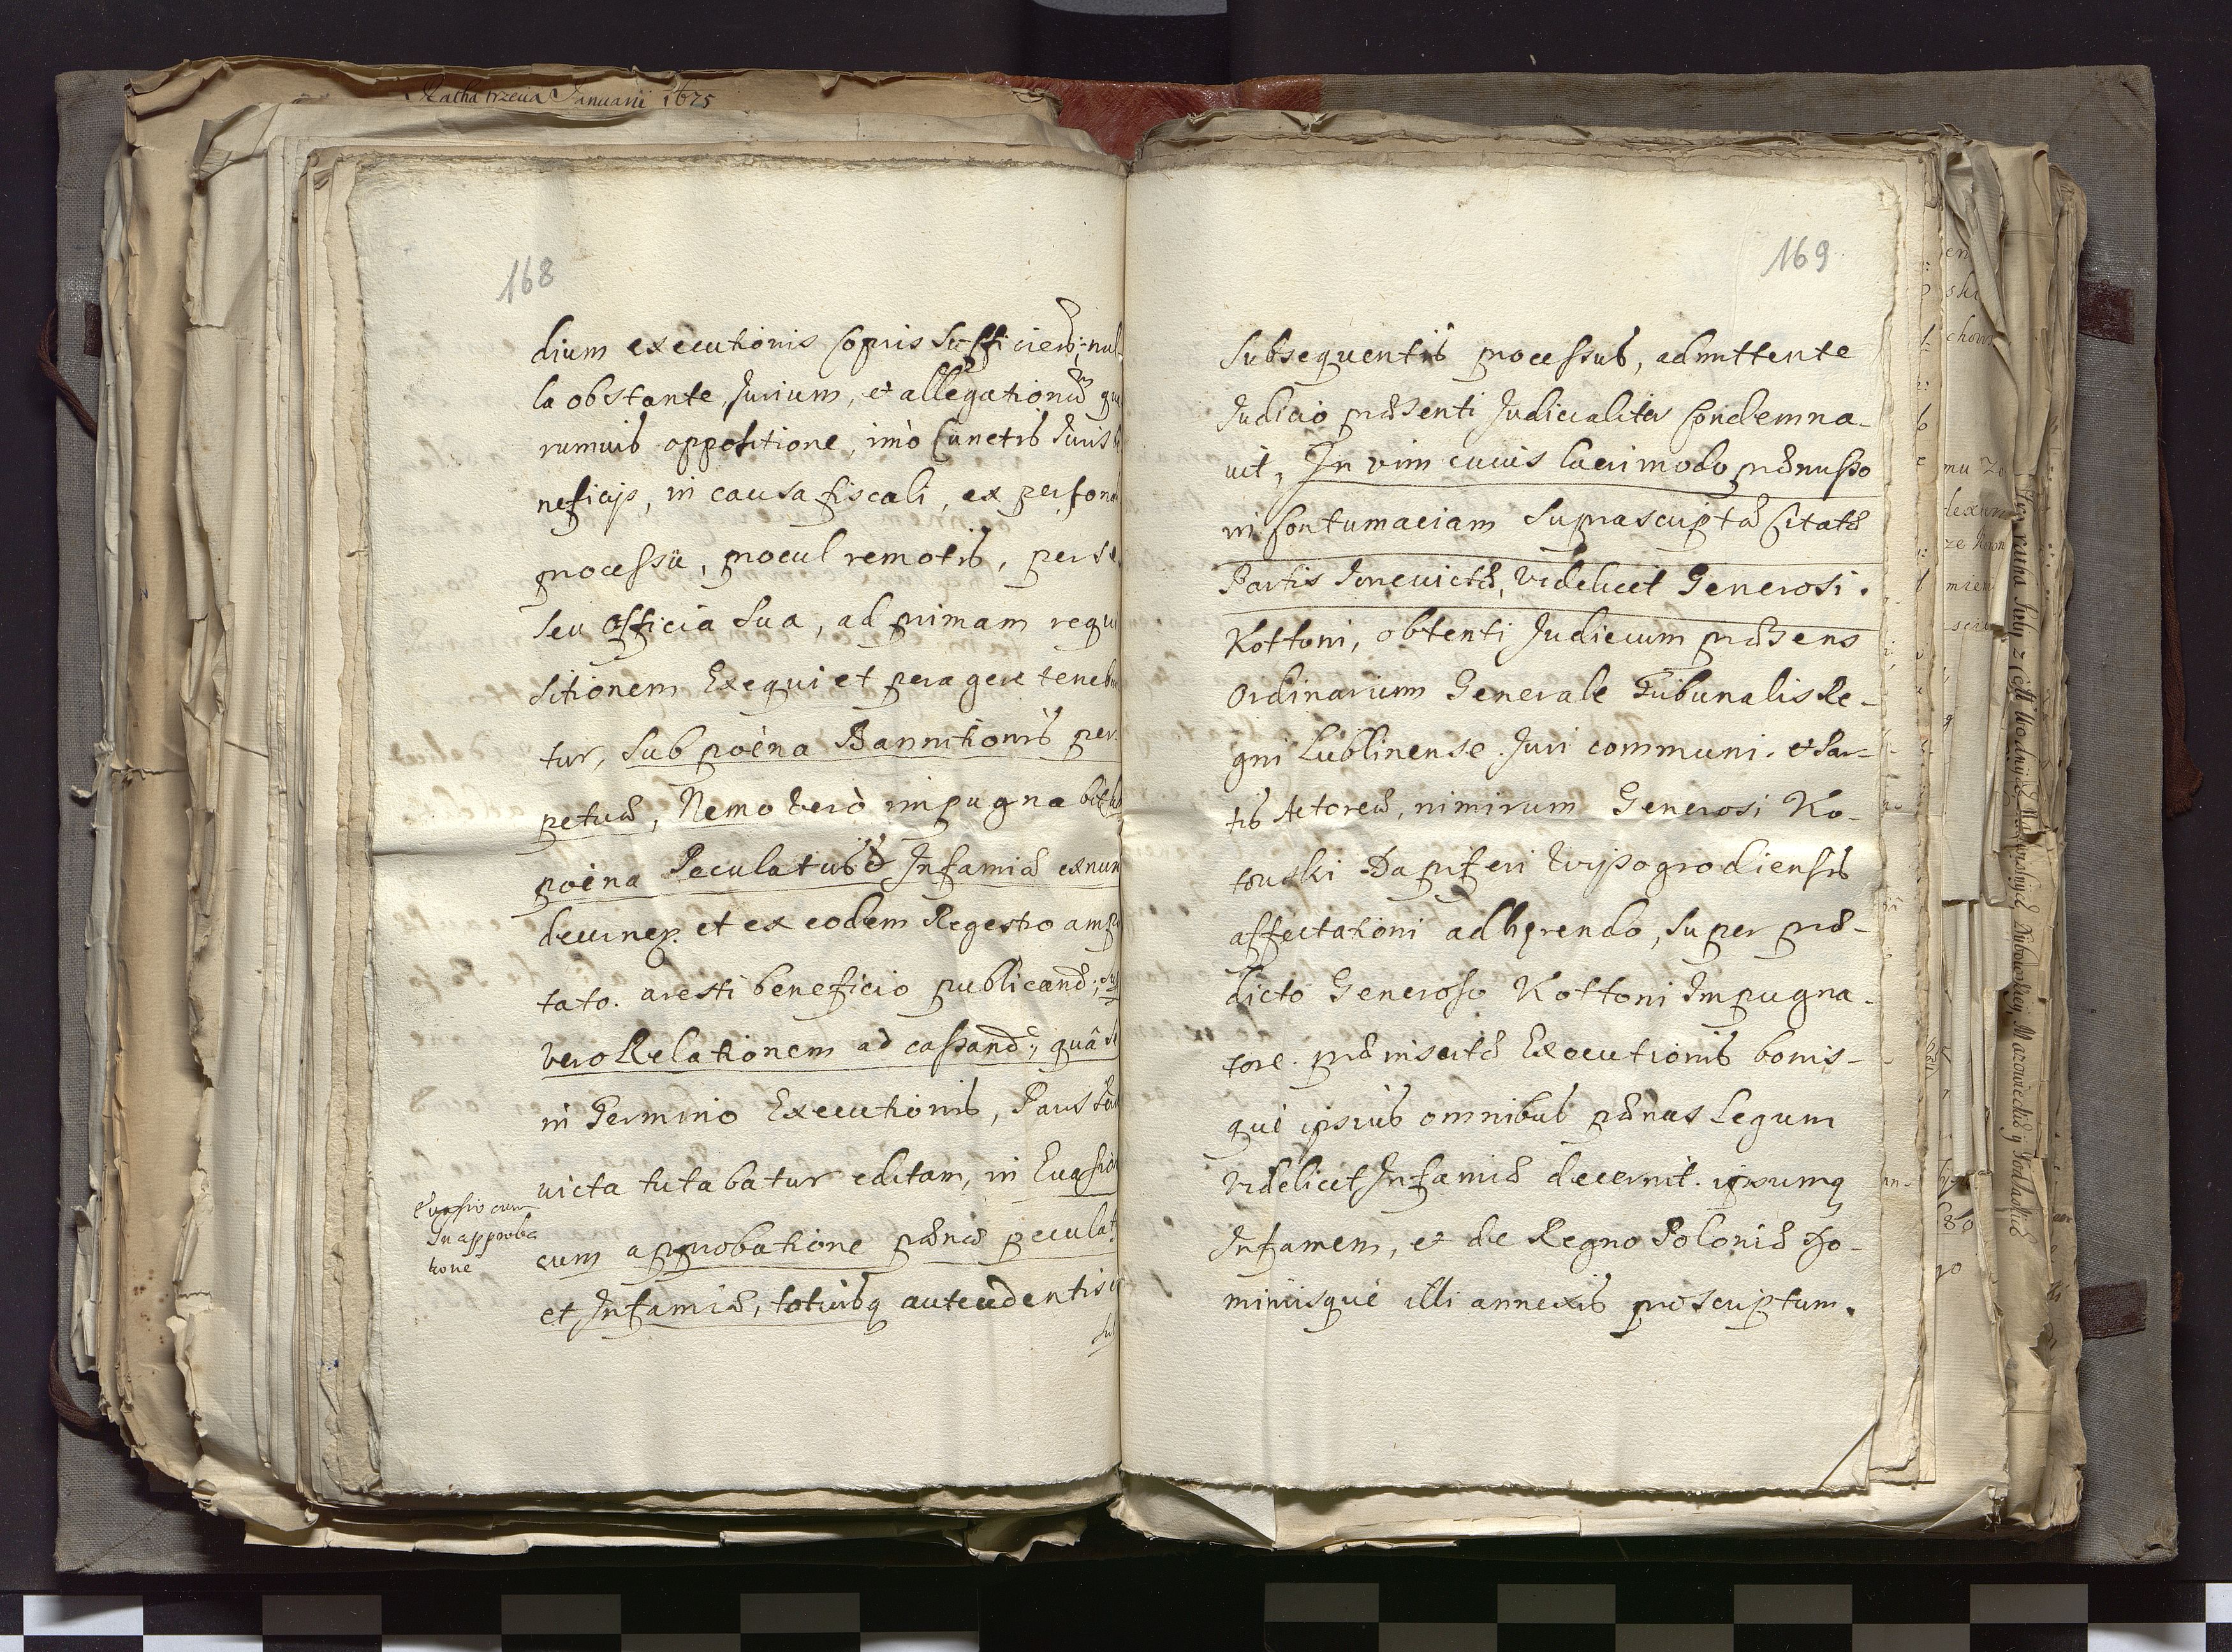 Ratha trzecia Januarii 1675
168
dium executionis Copris sufficien̄:, nul-
la obstante, Jurium, et allegationū qua
rumuis oppositione, imò Cunctis Juris be
neficijs, in causa fiscali, ex persona
processu, procul remotis, per se
seu officia sua, ad primam requi
sitionem Exequi et peragere teneb
tur, sub poena Bannitionis per
petuæ, Nemo verò impugnabit sub
poena Peculatus et Infamiæ exnunc
decernen. et ex eodem Regestro ampu
tato. aresti beneficio publicand:,
vero Relationem ad cassand:, quâ se
in Termino Executionis, Pars
victa tutabatur editam, in Evasion
cum approbatione pænæ peculat
et Infamiæ, totiusq
sub
Evasio cum
In approba
tione
169
Subsequentis processus, admittente
Judicio præsenti Judicialiter Condemna-
vit, In vim cuius lucri modo præmisso
in Contumaciam suprascriptæ Citatæ
Partis Convictæ, videlicet Generosi.
Kottoni, obtenti Judicium præsens
Ordinarium Generale Tribunalis Re-
gni Lublinense. Juri communi. et Par-
tis Actoreæ, nimirum Generosi Ko-
towski Dapiferi Wyszogrodiensis
affectationi adhęrendo, super præ-
dicto Generoso Kottoni Impugna-
tore. præinsertæ Executionis bonis-
què ipsius omnibus pænas Legum
Videlicet Infamiæ decernit. ipsumq
Infamem, et de Regno Poloniæ Do-
minijsquè illi annexis proscriptum.